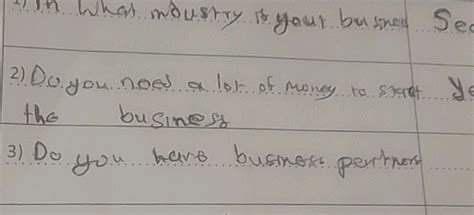 1) In what industry is your business Sec
2) Do you need a lot of money to start Ye
the business
3) Do you have business partners